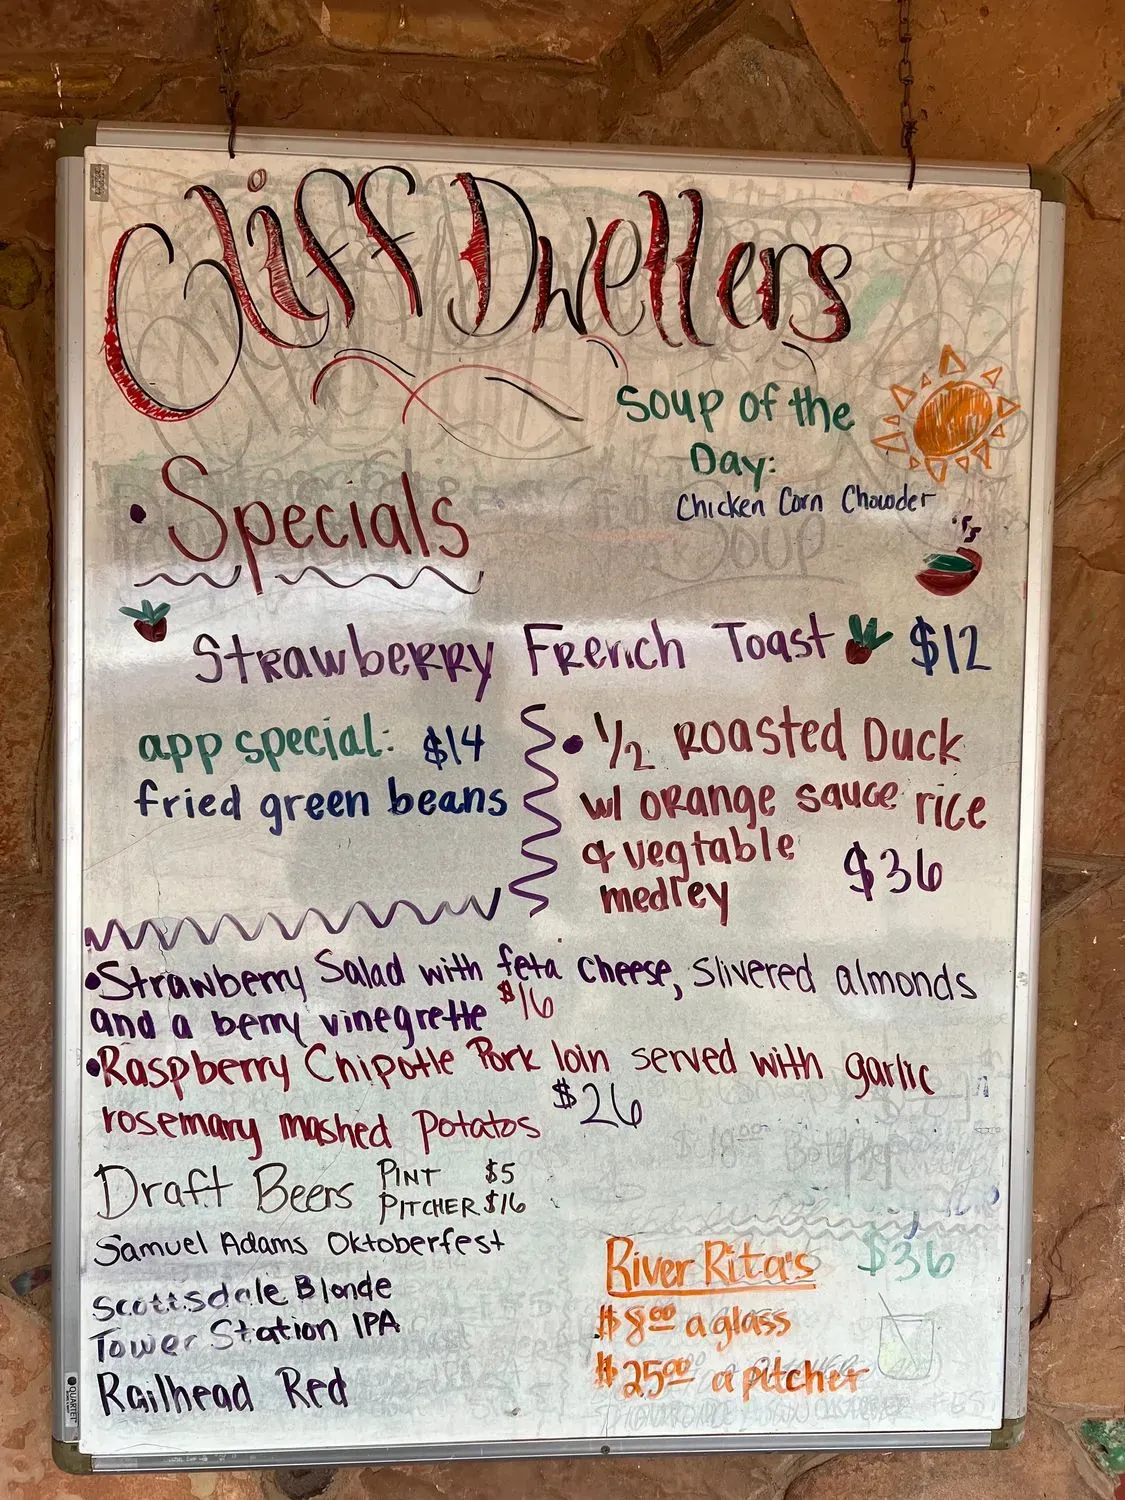 Cliff Dwellers
Soup of the
Day:
Chicken Corn Chowder
• Specials
Strawberry French Toast $12
app special: $14
fried green beans
• 1/2 Roasted Duck
w/ orange sauce rice
& vegtable
medley $36
•Strawberry Salad with feta cheese, slivered almonds
and a berry vinegrette $16
•Raspberry Chipotle Pork loin served with garlic
rosemary mashed potatos $26
Draft Beers
PINT $5
PITCHER $16
Samuel Adams Oktoberfest
Scottsdale Blonde
Tower Station IPA
Railhead Red
River Rita's
$36
$8.00 a glass
$25.00 a pitcher
QUARTET